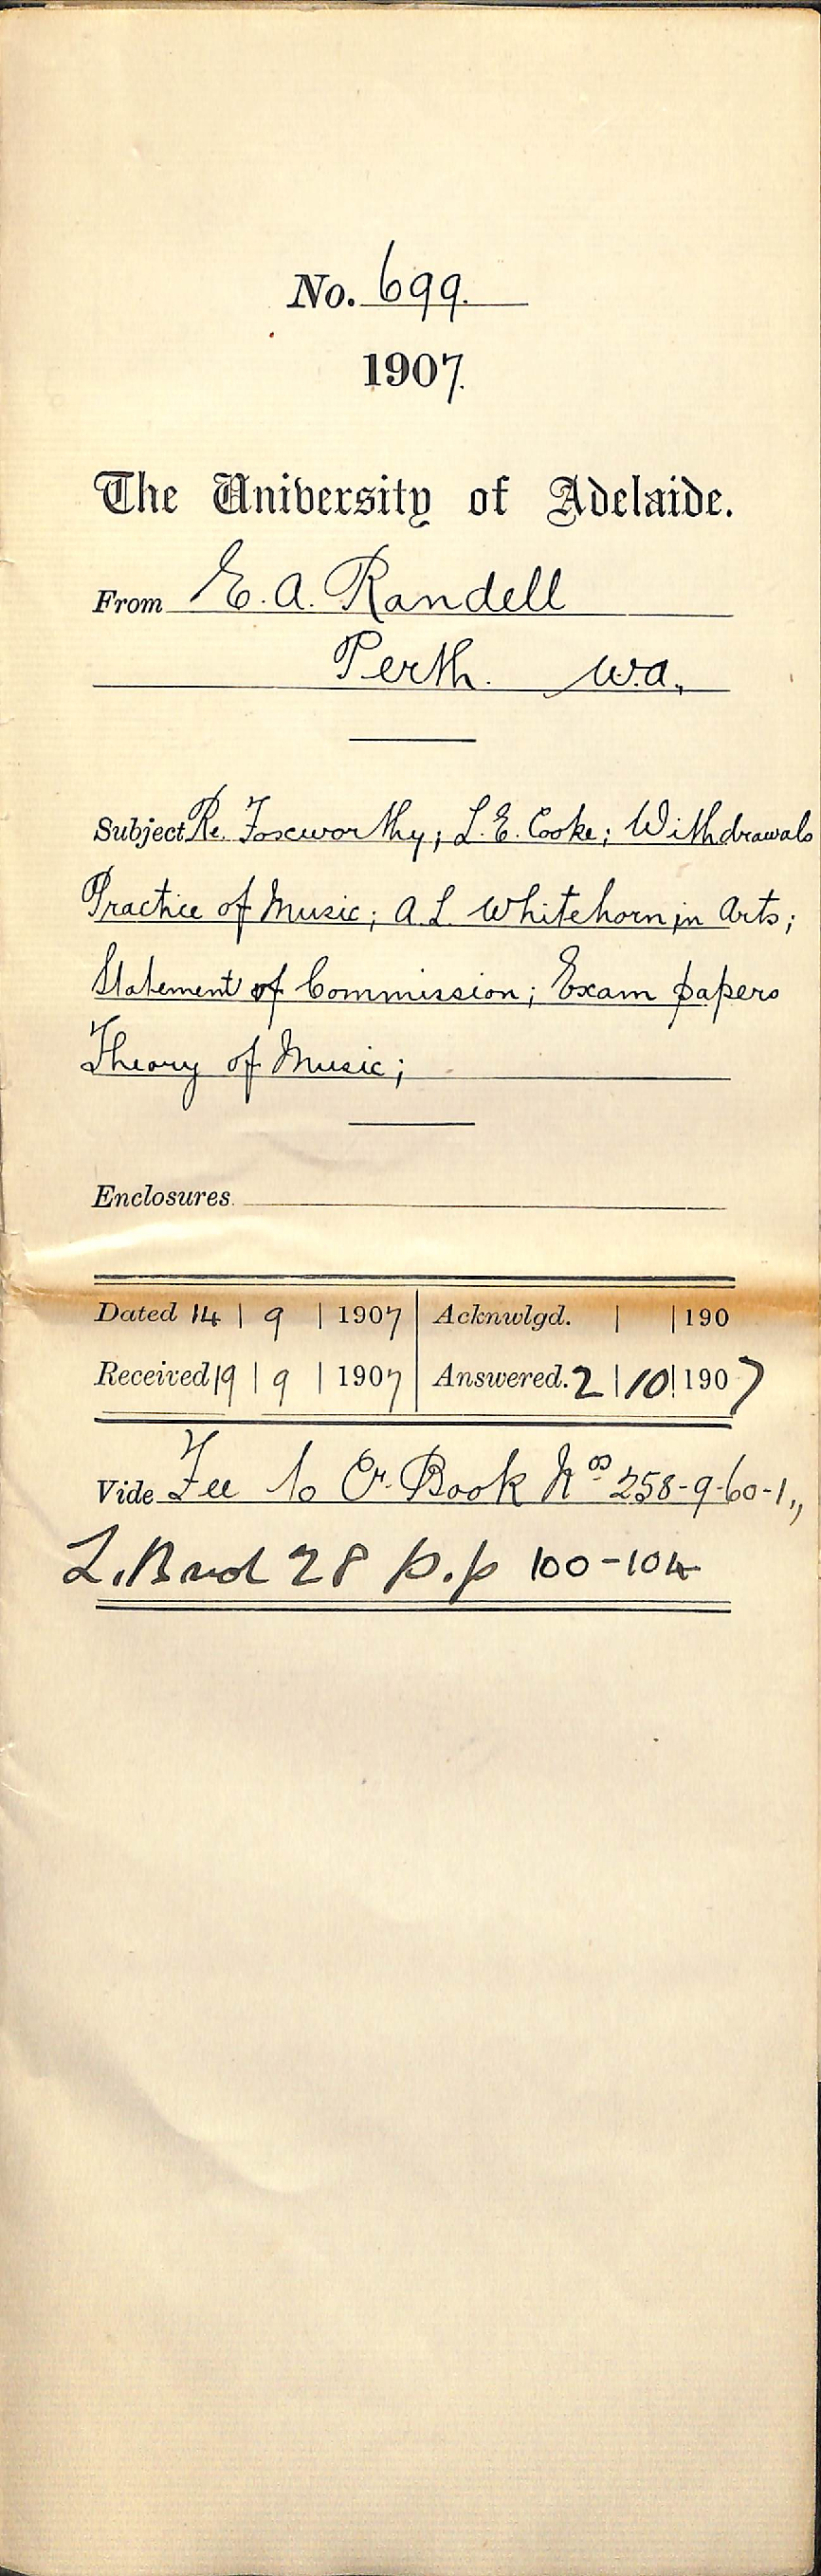 No. 699.
1907.
The University of Adelaide.
From E. A. Randell
Perth. W.A.
Subject Re. Foxworthy; L. E. Cooke; Withdrawals
Practice of Music; A. L. Whitehorn in Arts;
Statement of Commission; Exam papers
Theory of Music;
Enclosures
Dated 14 | 9 | 1907 | Acknwlgd. | | 190
Received 19 | 9 | 1907 | Answered. 2 | 10 | 1907
Vide Fee to Cr. Book Nos 258-9-60-1,,
L.B vol 28 p.p 100-104